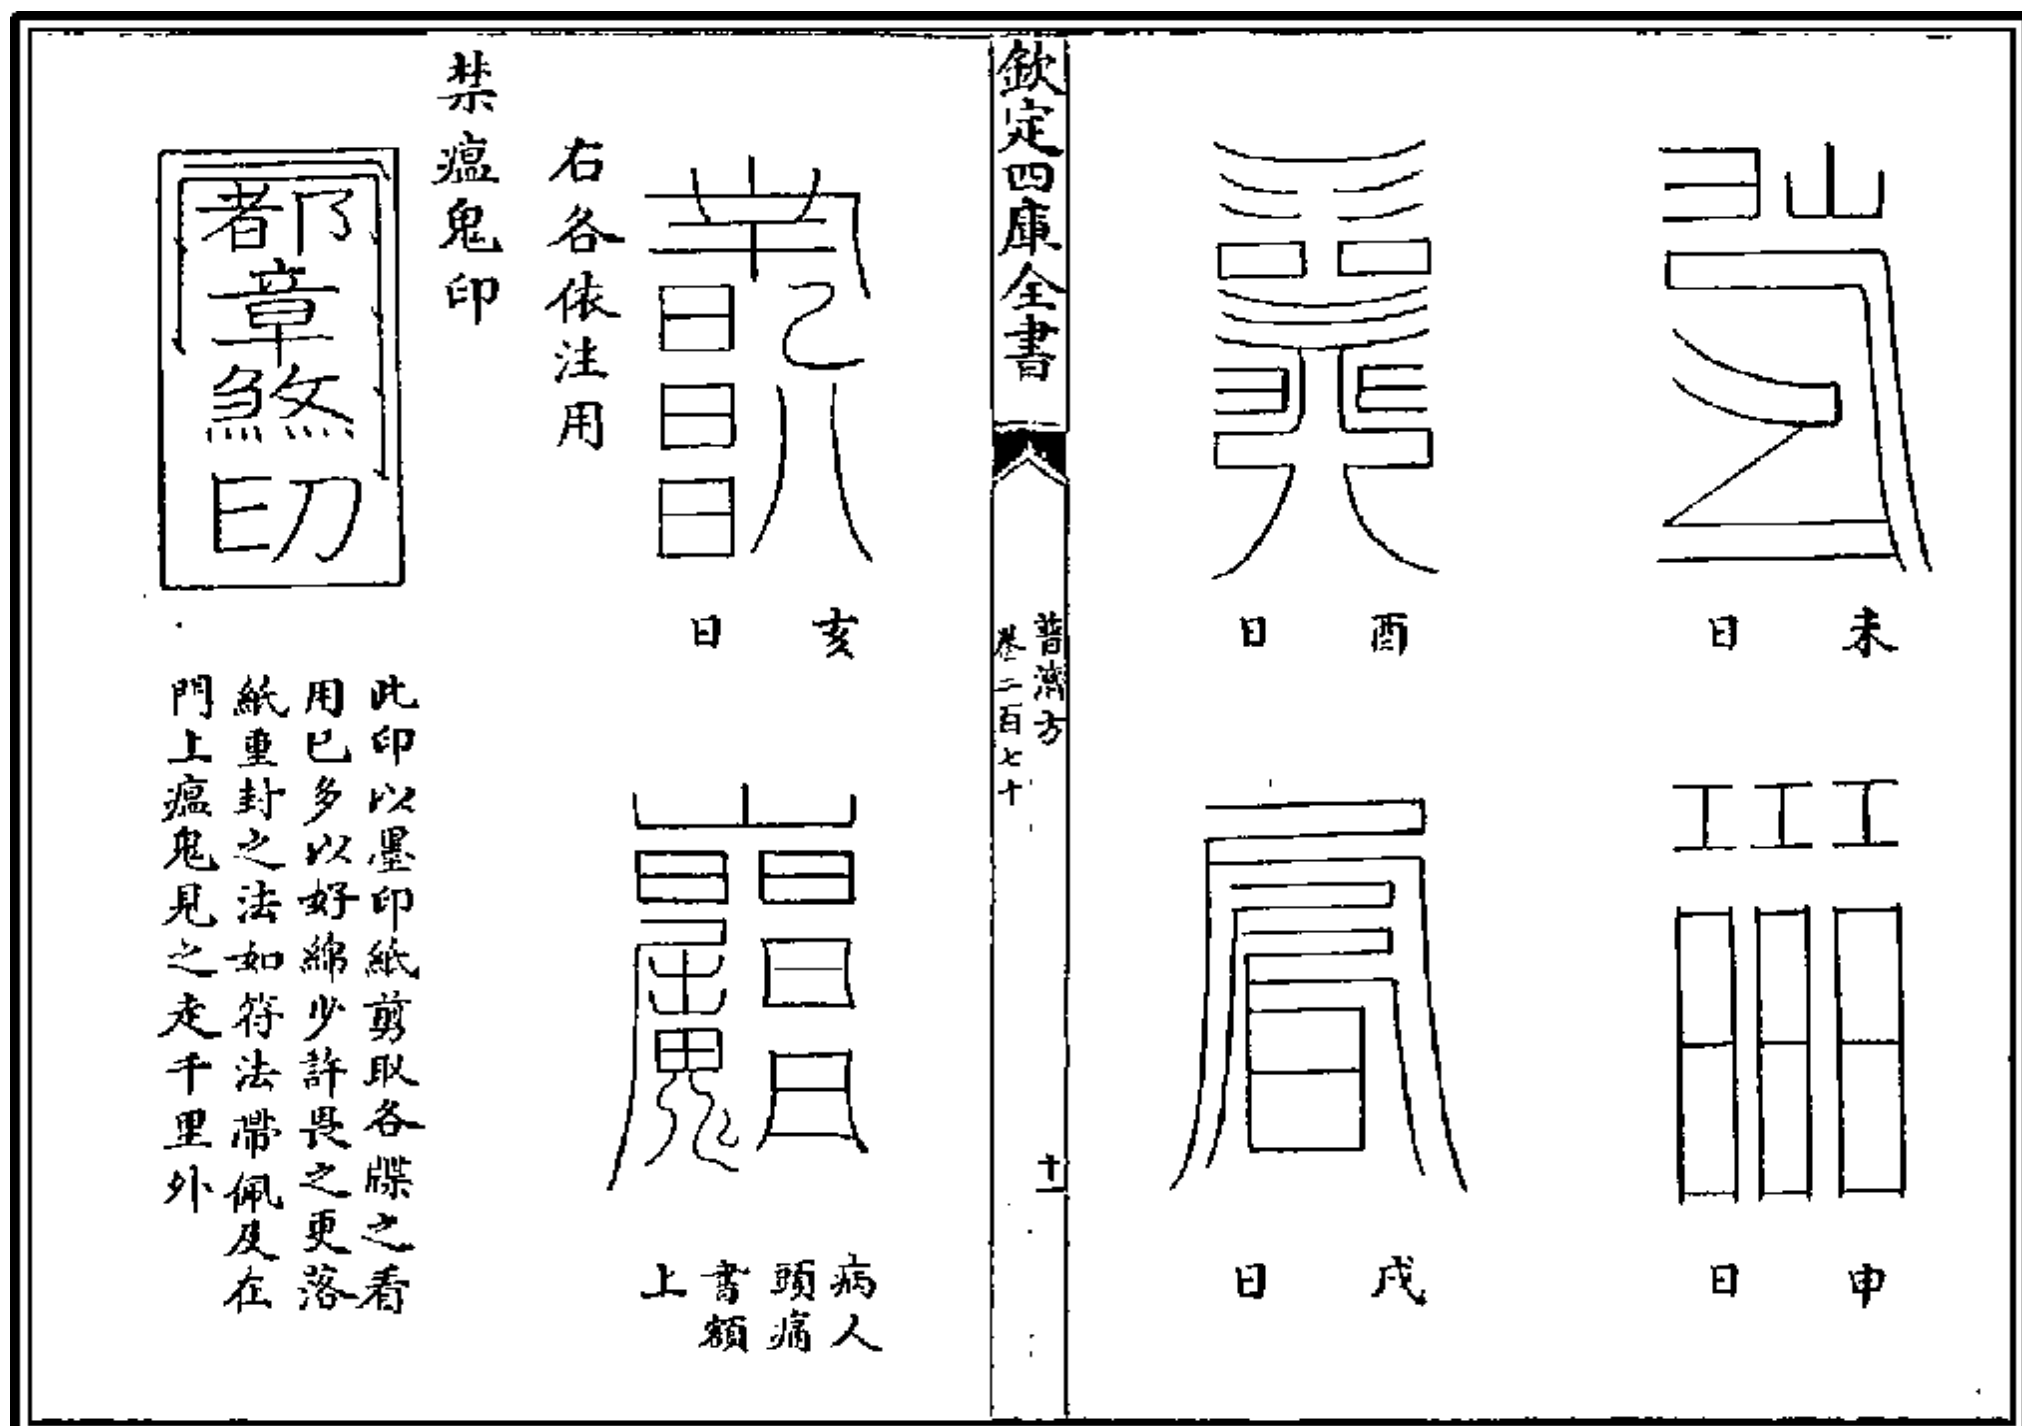 未日
申日
酉日
戌日
欽定四庫全書
普濟方
卷二百七十
十
亥日
病人
頭痛
書額
上
右各依注用
禁瘟鬼印
都章煞印
此印以墨印紙剪取各牒之看
用已多以好綿少許畏之更落
紙重封之法如符法帶佩及在
門上瘟鬼見之走千里外